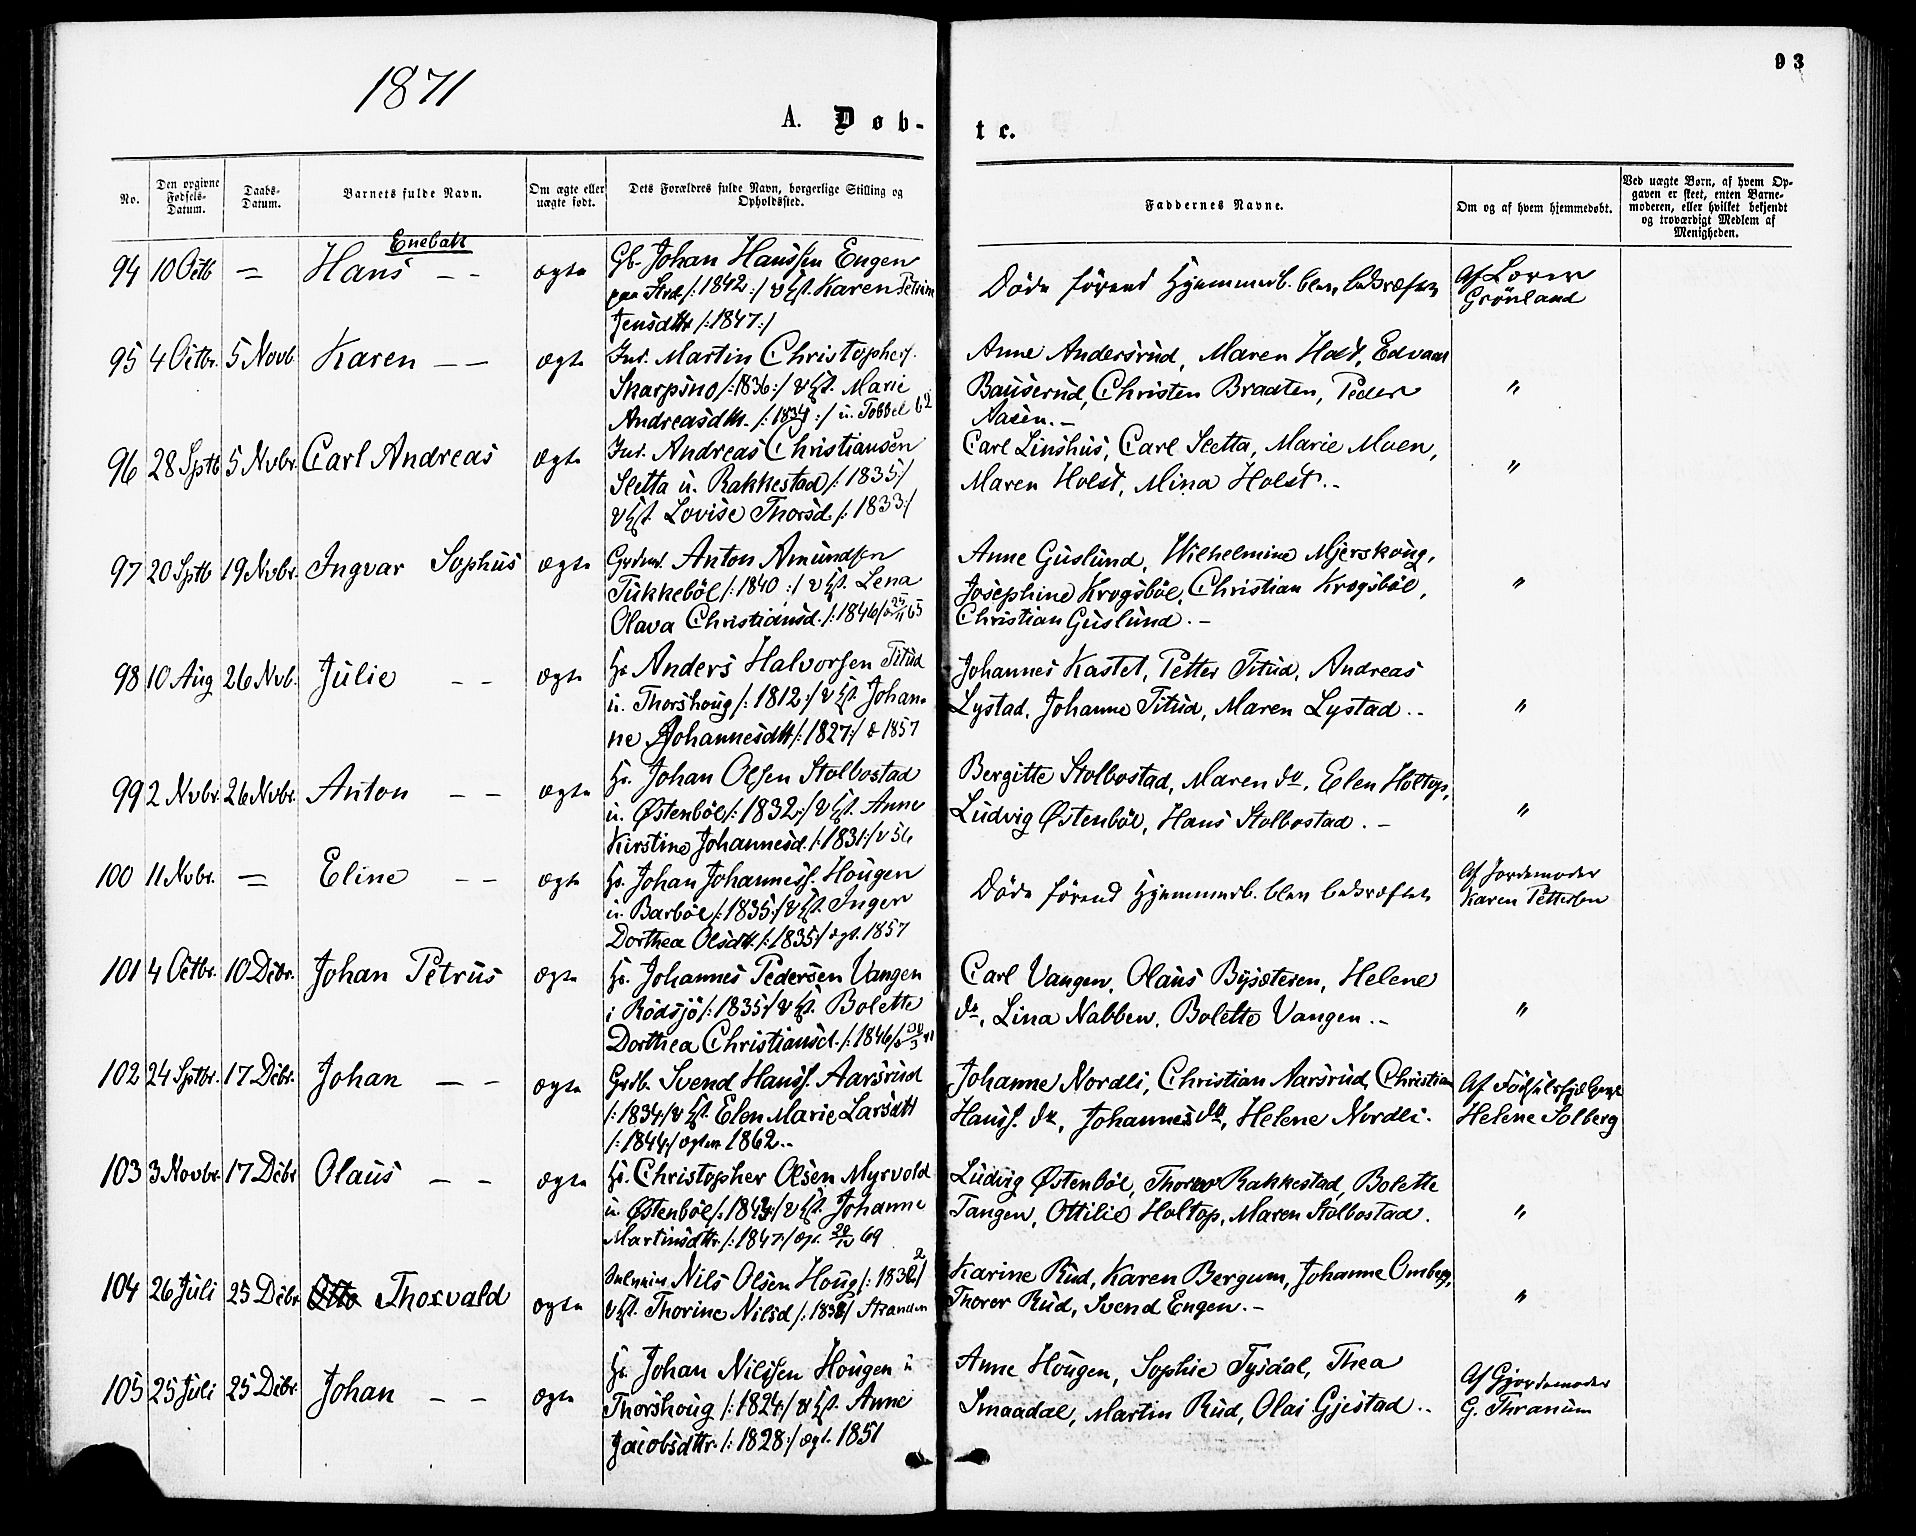 1871
93
A. Døb-
te.
No.
Den opgivne Fødsels-Datum.
Daabs-Datum.
Barnets fulde Navn.
Om ægte eller uægte født.
Dets Forældres fulde Navn, borgerlige Stilling og Opholdssted.
Faddernes Navne.
Om og af hvem hjemmedøbt.
Ved uægte Børn, af hvem Opgaven er skeet, enten Barnemoderen, eller hvilket bekjendt og troværdigt Medlem af Menigheden.
Enebak
94 10 Octb = Hans – – ægte
Gb. Johan Hanssen Engen
/:1842:/ & Hst. Karen Petrine
Jensdttr /:1847:/
Døde førend Hjemmed. blev bekræftet
Af Lover
Grönland
95 4 Octbr. 5 Novb Karen – – ægte
Ins. Martin Christophers.
Skarpsno /:1836:/ & Hst. Marie
Andreasdttr. /:1834:/ u. Tobbel 62
Anne Andersrud, Maren Hoel, Edvard
Bauserud, Christen Braaten, Peder
Aasen. –
"
96 28 Sptb 5 Nvbr. Carl Andreas ægte
Ins. Andreas Christiansen
Sletta u. Rakkestad /:1835:/
& Hst. Lovise Thorsd. /:1833:/
Carl Linshus, Carl Sletta, Marie Moen,
Maren Holst, Mina Holst. –
"
97 20 Sptb 19 Nvbr. Ingvar Sophus ægte
Anton Amundsen
Tukkebøl /:1840:/ & Hst. Lena
Olava Christiansd. /:1846/ 25/11 65
Anne Guslund, Wilhelmine Mjerskoug,
Josephine Krogsbøl, Christian Krogsbøl,
Christian Guslund. –
"
98 10 Aug 26 Nvb. Julie – – ægte
Hs. Anders Halvorsen Titud
u. Thorshoug /:1812:/ & Hst. Johan-
ne Johannesdtt /:1827:/ 1857
Johannes Kastet, Petter Titud, Andreas
Lystad, Johanne Titud, Maren Lystad. –
"
99 2 Nvbr. 26 Nvbr. Anton – – ægte
Hs. Johan Olsen Stolbostad
u. Østenbøl /:1832:/ & Hst. Anne
Kirstine Johannesd. /:1831:/ 56
Bergitte Stolbostad, Maren do, Elen Holtop,
Ludvig Østenbøl, Hans Stolbostad. –
"
100 11 Nvbr. = Eline – – ægte
Hs. Johan Johanness. Hougen
u. Barbøl /:1835:/ & Hst. Inger
Dorthea Olsdtt. /:1835:/ ægt. 1857
Døde førend Hjemmed. blev bekræftet
Af Jordemoder
Karen Pettersen
101 4 Octbr. 10 Dcbr. Johan Petrus ægte
Hs. Johannes Pedersen Vangen
i Rödsjö /:1835:/ & Hst. Bolette
Dorthea Christiansd. /:1846/
Carl Vangen, Olaus Bysæteren, Helene
do, Lina Nabben, Bolette Vangen. –
"
102 24 Sptbr. 17 Dcbr. Johan – – ægte
Grdb. Svend Hanss. Aarsrud
/:1834/ & Hst. Elen Marie Larsdtt
/:1844:/ ægtev. 1862. –
Johanne Nordli, Christian Aarsrud, Christian
Hanss. do, Johannes do, Helene Nordli.
Af Fødselshjælpersk
Helene Solberg
103 3 Novbr. 17 Dcbr Olaus – – ægte
Hs. Christopher Olsen Myrvold
u Østenbøl /:1843:/ & Hst. Johanne
Martinsdttr. /:1847:/ ægt. 69
Ludvig Østenbøl, Thorer Rakkestad, Bolette
Tangen, Ottilie Holtop, Maren Stolbostad.
"
104 26 Juli 25 Dcbr. Thorvald ægte
Nils Olsen Houg /:1832/
& Hst. Thorine Nilsd /:1838/ Stranden
Karine Rud, Karen Bergum, Johanne Omberg,
Thorer Rud, Svend Engen. –
"
105 25 Juli 25 Dcbr. Johan – – ægte
Hs. Johan Nilssen Hougen u
Thorshoug /:1824:/ & Hst. Anne
Jacobsdttr. /:1828:/ ægt. 1851
Anne Hougen, Sophie Tysdal, Thea
Smaadal, Martin Rud, Olai Gjestad. –
Af Gjordemoder
G. Thranum